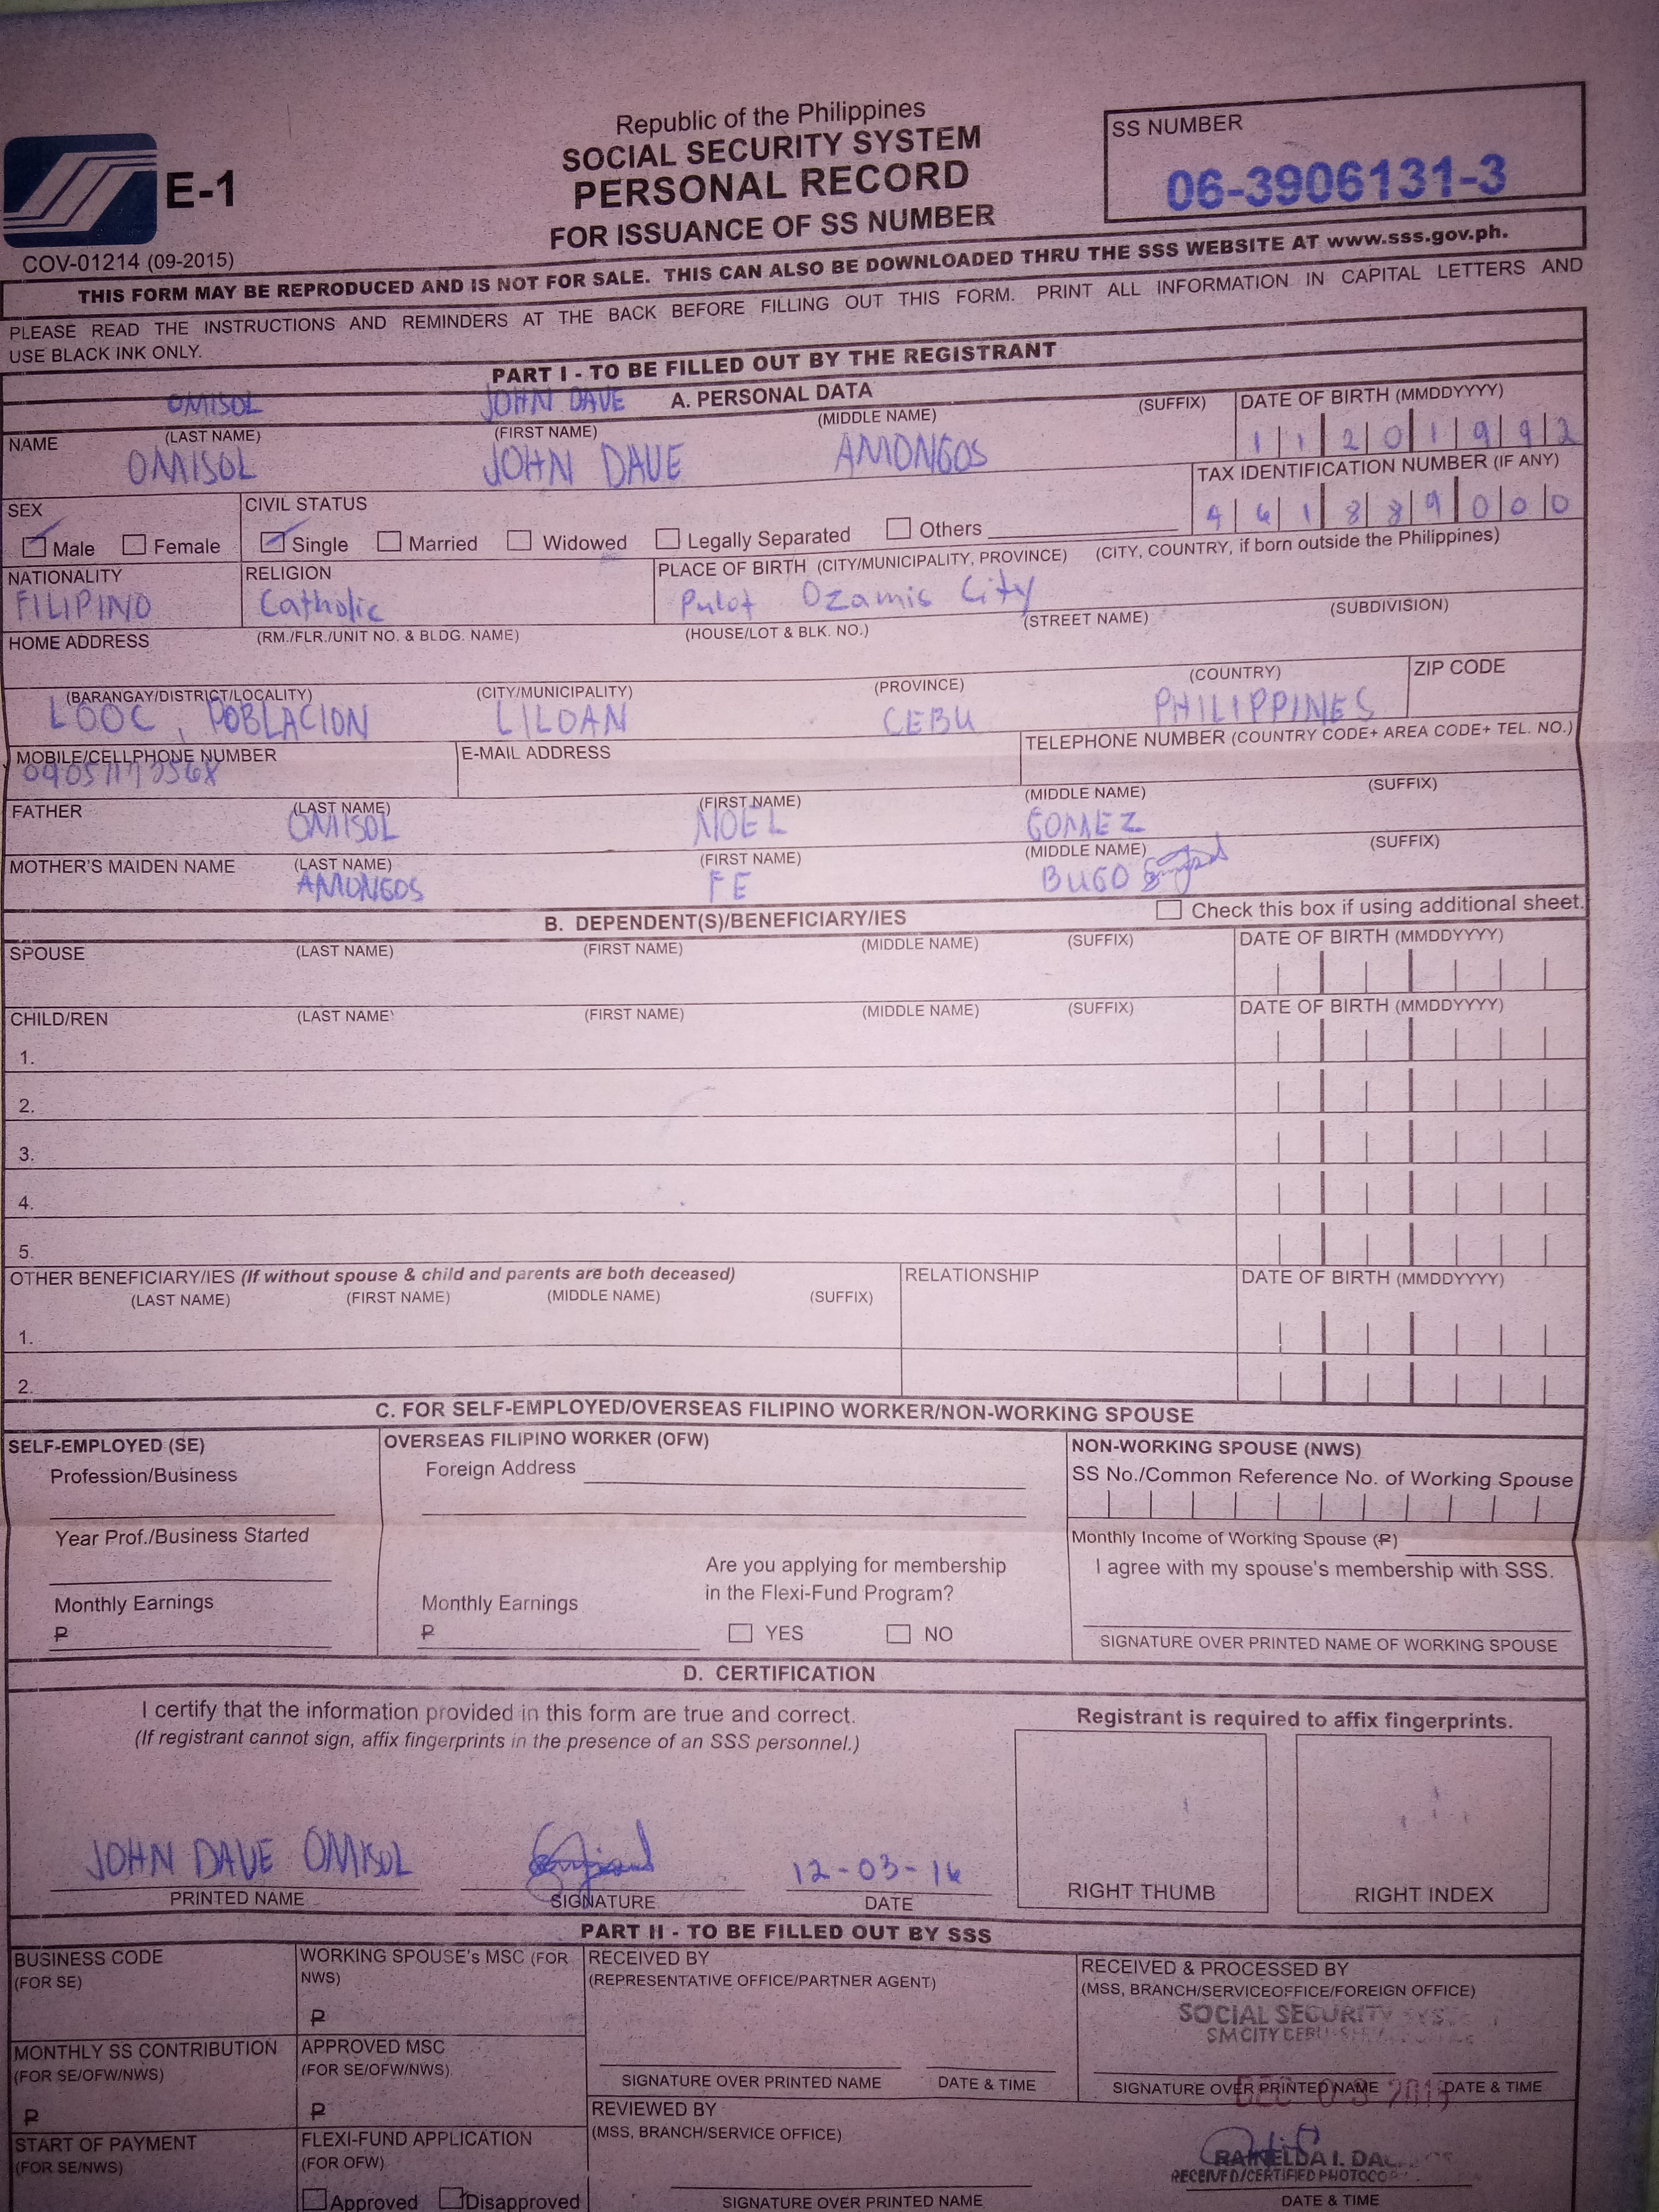 Republic of the Philippines
SOCIAL SECURITY SYSTEM
PERSONAL RECORD
FOR ISSUANCE OF SS NUMBER
E-1
COV-01214 (09-2015)
SS NUMBER
06-3906131-3
THIS FORM MAY BE REPRODUCED AND IS NOT FOR SALE. THIS CAN ALSO BE DOWNLOADED THRU THE SSS WEBSITE AT www.sss.gov.ph.
PLEASE READ THE INSTRUCTIONS AND REMINDERS AT THE BACK BEFORE FILLING OUT THIS FORM. PRINT ALL INFORMATION IN CAPITAL LETTERS AND
USE BLACK INK ONLY.
PART I - TO BE FILLED OUT BY THE REGISTRANT
OMISOL JOHN DAVE A. PERSONAL DATA
NAME (LAST NAME) (FIRST NAME) (MIDDLE NAME) (SUFFIX) DATE OF BIRTH (MMDDYYYY)
OMISOL JOHN DAVE AMONGOS 1 1 2 0 1 9 9 2
TAX IDENTIFICATION NUMBER (IF ANY)
4 6 1 8 8 9 0 0 0
SEX CIVIL STATUS
Male Female Single Married Widowed Legally Separated Others
NATIONALITY RELIGION PLACE OF BIRTH (CITY/MUNICIPALITY, PROVINCE) (CITY, COUNTRY, if born outside the Philippines)
FILIPINO Catholic Pulot Ozamis City
HOME ADDRESS (RM./FLR./UNIT NO. & BLDG. NAME) (HOUSE/LOT & BLK. NO.) (STREET NAME) (SUBDIVISION)
(BARANGAY/DISTRICT/LOCALITY) (CITY/MUNICIPALITY) (PROVINCE) (COUNTRY) ZIP CODE
LOOC, POBLACION LILOAN CEBU PHILIPPINES
MOBILE/CELLPHONE NUMBER E-MAIL ADDRESS TELEPHONE NUMBER (COUNTRY CODE+ AREA CODE+ TEL. NO.)
FATHER (LAST NAME) (FIRST NAME) (MIDDLE NAME) (SUFFIX)
OMISOL NOEL GOMEZ
MOTHER'S MAIDEN NAME (LAST NAME) (FIRST NAME) (MIDDLE NAME) (SUFFIX)
AMONGOS FE BUGO
B. DEPENDENT(S)/BENEFICIARY/IES Check this box if using additional sheet.
SPOUSE (LAST NAME) (FIRST NAME) (MIDDLE NAME) (SUFFIX) DATE OF BIRTH (MMDDYYYY)
CHILD/REN (LAST NAME) (FIRST NAME) (MIDDLE NAME) (SUFFIX) DATE OF BIRTH (MMDDYYYY)
1.
2.
3.
4.
5.
OTHER BENEFICIARY/IES (If without spouse & child and parents are both deceased) RELATIONSHIP DATE OF BIRTH (MMDDYYYY)
(LAST NAME) (FIRST NAME) (MIDDLE NAME) (SUFFIX)
1.
2.
C. FOR SELF-EMPLOYED/OVERSEAS FILIPINO WORKER/NON-WORKING SPOUSE
SELF-EMPLOYED (SE)
Profession/Business
Year Prof./Business Started
Monthly Earnings
₱
OVERSEAS FILIPINO WORKER (OFW)
Foreign Address
Monthly Earnings
₱
Are you applying for membership
in the Flexi-Fund Program?
YES NO
NON-WORKING SPOUSE (NWS)
SS No./Common Reference No. of Working Spouse
Monthly Income of Working Spouse (₱)
I agree with my spouse's membership with SSS.
SIGNATURE OVER PRINTED NAME OF WORKING SPOUSE
D. CERTIFICATION
I certify that the information provided in this form are true and correct.
(If registrant cannot sign, affix fingerprints in the presence of an SSS personnel.)
Registrant is required to affix fingerprints.
JOHN DAVE OMISOL 12-03-16
PRINTED NAME SIGNATURE DATE
RIGHT THUMB RIGHT INDEX
PART II - TO BE FILLED OUT BY SSS
BUSINESS CODE
(FOR SE)
WORKING SPOUSE's MSC (FOR
NWS)
₱
MONTHLY SS CONTRIBUTION
(FOR SE/OFW/NWS)
₱
APPROVED MSC
(FOR SE/OFW/NWS)
₱
START OF PAYMENT
(FOR SE/NWS)
FLEXI-FUND APPLICATION
(FOR OFW)
Approved Disapproved
RECEIVED BY
(REPRESENTATIVE OFFICE/PARTNER AGENT)
SIGNATURE OVER PRINTED NAME DATE & TIME
REVIEWED BY
(MSS, BRANCH/SERVICE OFFICE)
SIGNATURE OVER PRINTED NAME
RECEIVED & PROCESSED BY
(MSS, BRANCH/SERVICEOFFICE/FOREIGN OFFICE)
SOCIAL SECURITY
SM CITY CEBU
SIGNATURE OVER PRINTED NAME DATE & TIME
DEC 03
RAINELDA I.
RECEIVED/CERTIFIED
DATE & TIME